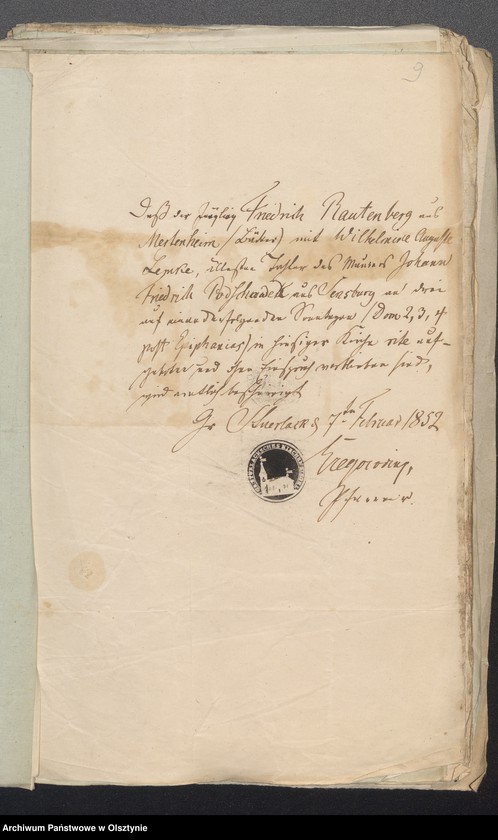 9
Daß der Jüngling Friedrich Rautenberg aus
Mertenheim (Bäcker) mit Wilhelmine Auguste
Lemke, ältesten Tochter des Maurers Johann
Friedrich aus Sensburg an drei
auf einanderfolgenden Sonntagen (Dom 2, 3, 4
post Epiphanias) in hiesiger Kirche rite auf-
geboten und ohne Einspruch verblieben sind,
wird amtlich bescheinigt
Gr 7ten Februar 1852
Gregorovius,
Pfarrer.
Archiwum Państwowe w Olsztynie